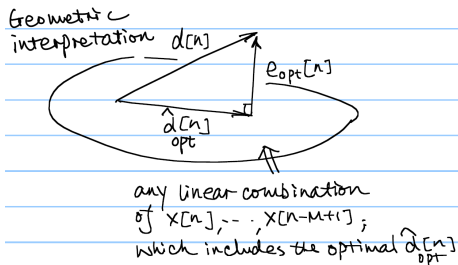 Geometric
interpretation
d[n]
e_opt[n]
d̂_opt[n]
any linear combination
of x[n], ..., x[n-M+1];
which includes the optimal d̂_opt[n]